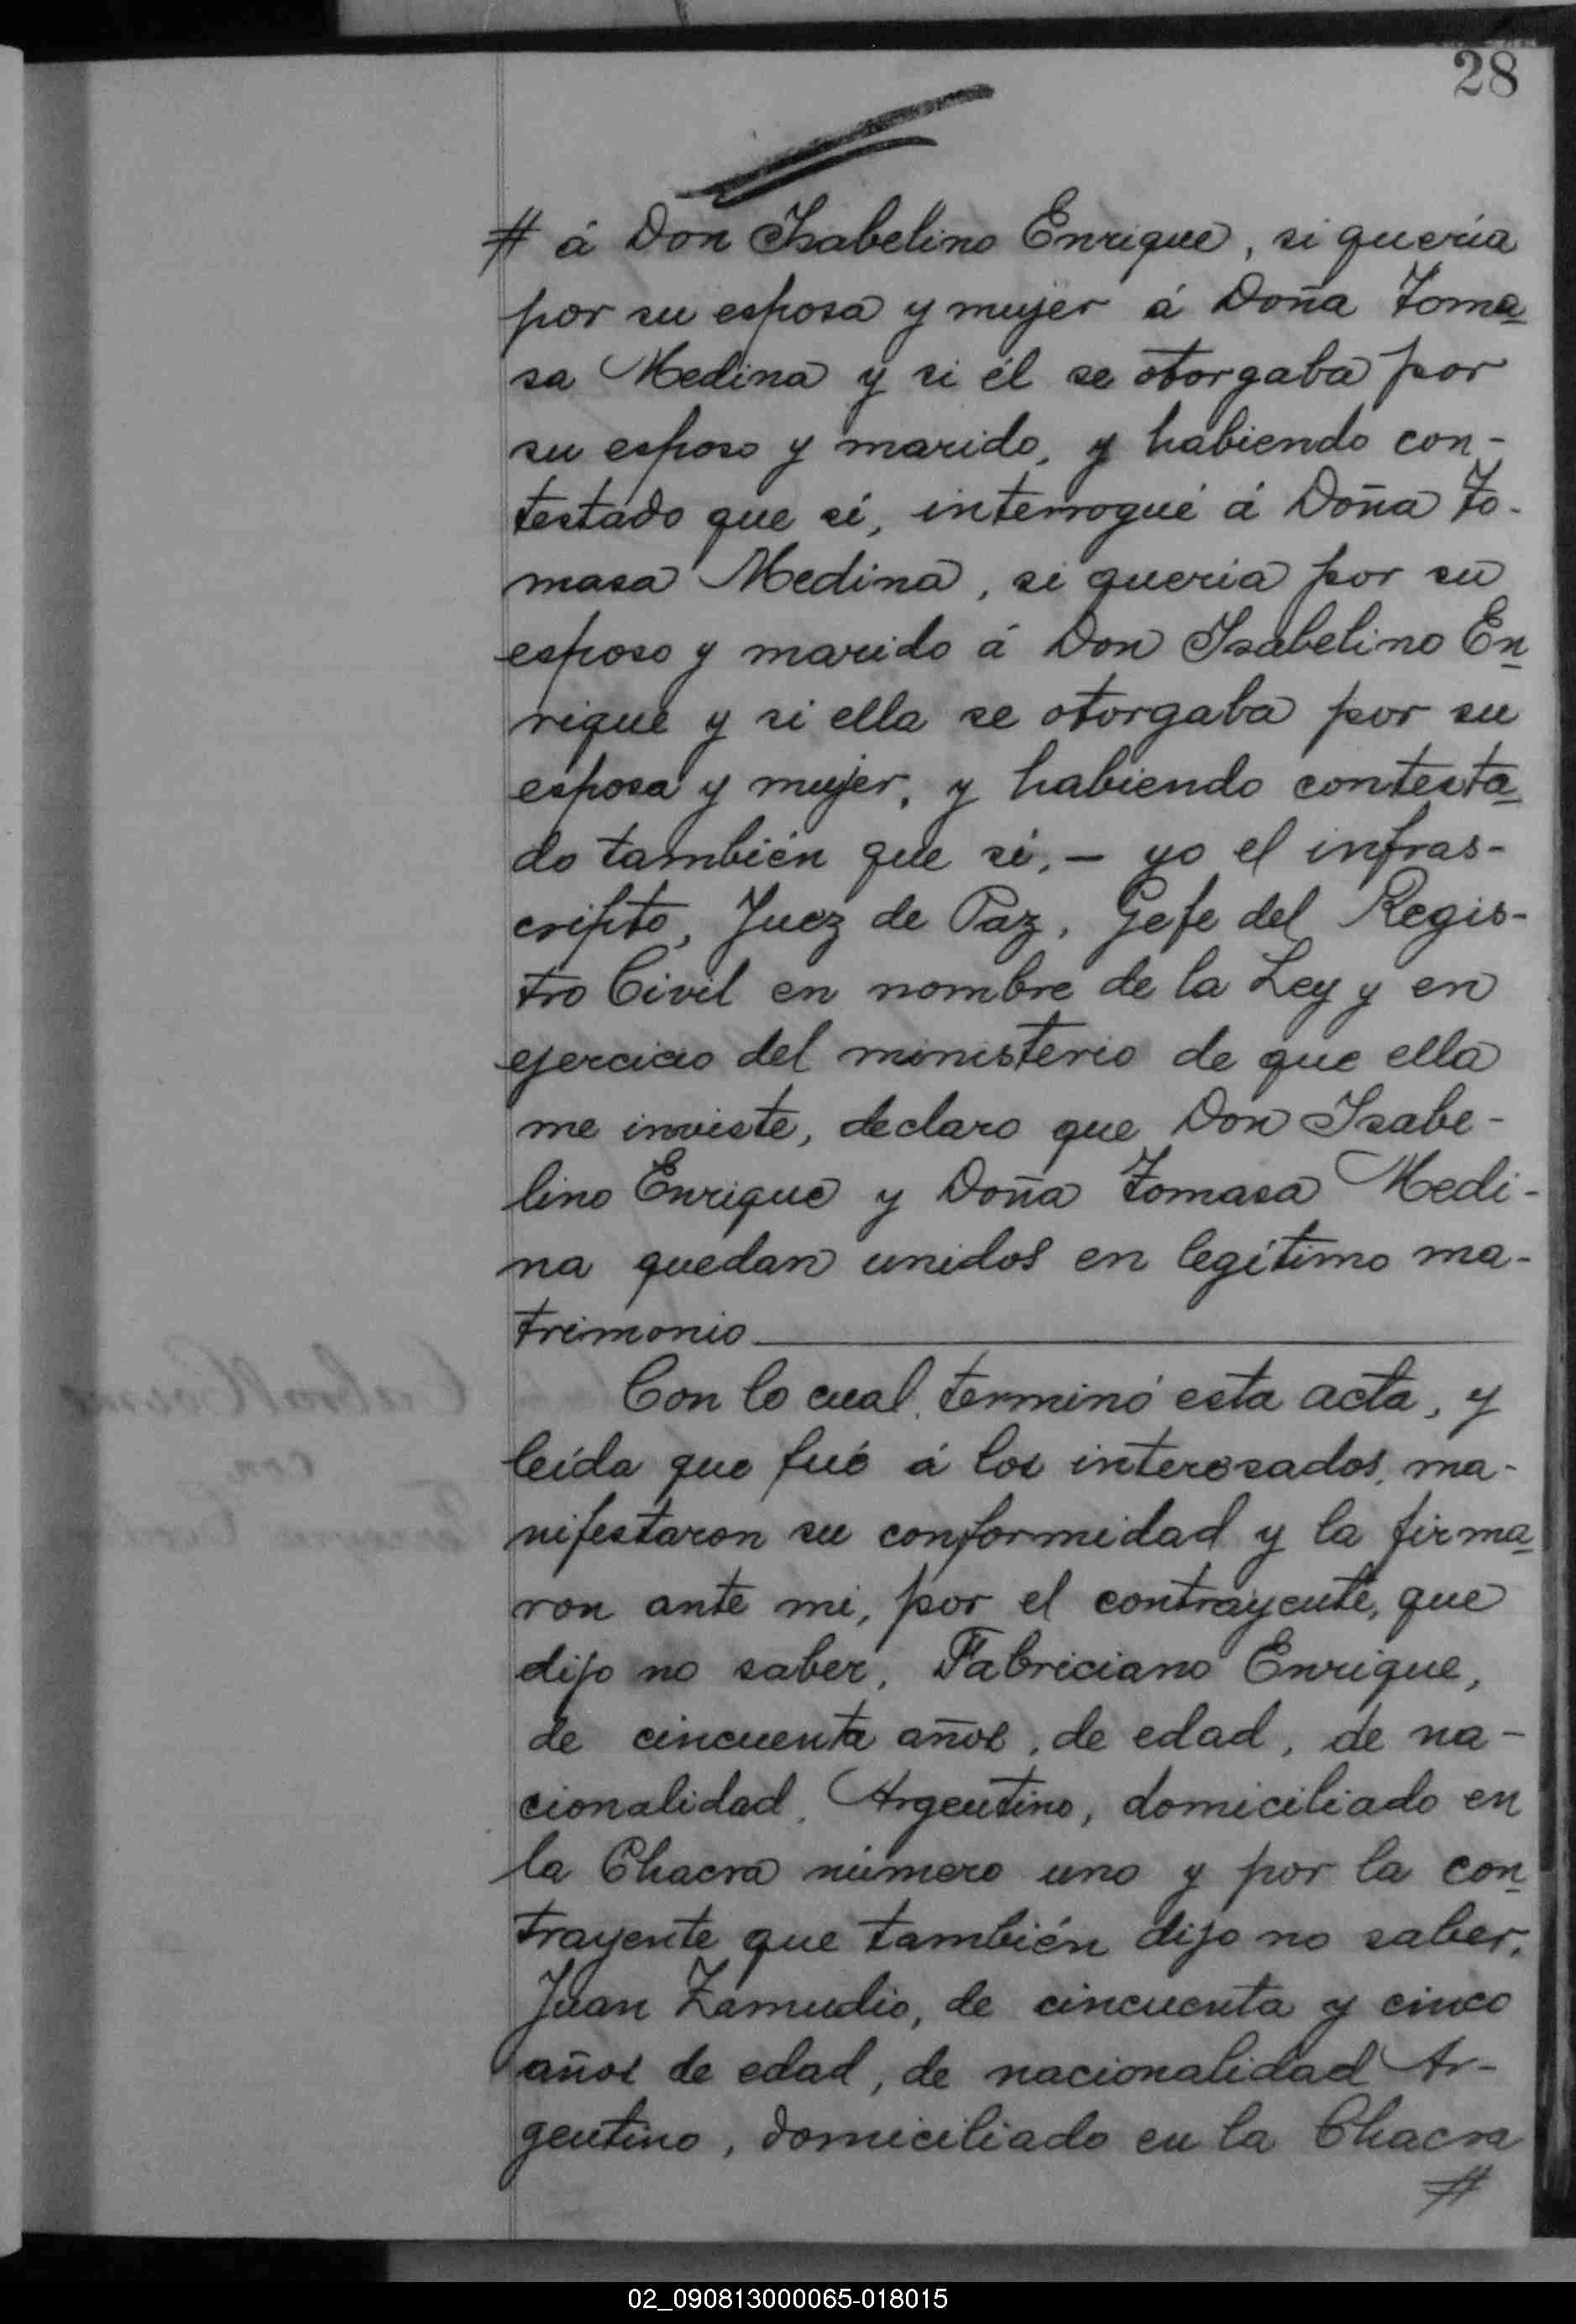 28
# á Don Isabelino Enrique, si quería
por su esposa y mujer á Doña Toma
sa Medina y si él se otorgaba por
su esposo y marido, y habiendo con-
testado que sí, interrogué á Doña To-
masa Medina, si queria por su
esposo y marido á Don Isabelino En
rique y si ella se otorgaba por su
esposa y mujer, y habiendo contesta
do también que sí, - yo el infras-
cripto, Juez de Paz, Gefe del Regis-
tro Civil en nombre de la Ley y en
ejercicio del ministerio de que ella
me inviste, declaro que Don Isabe-
lino Enrique y Doña Tomasa Medi-
na quedan unidos en legítimo ma-
trimonio
Con lo cual, terminó esta acta, y
leída que fué á los interesados, ma-
nifestaron su conformidad y la firma
ron ante mi, por el contrayente, que
dijo no saber, Fabriciano Enrique,
de cincuenta años, de edad, de na-
cionalidad, Argentino, domiciliado en
la Chacra número uno y por la con
trayente que también dijo no saber,
Juan Zamudio, de cincuenta y cinco
años de edad, de nacionalidad Ar-
gentino, domiciliado en la Chacra
#
02_090813000065-018015